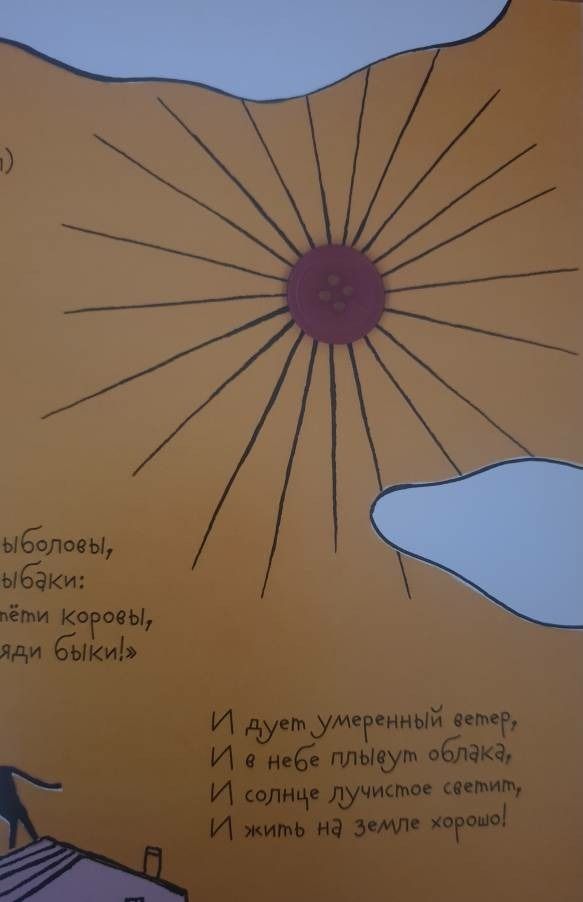 )
ыболовы,
ыбаки:
тёти коровы,
яди быки!»
И дует умеренный ветер,
И в небе плывут облака,
И солнце лучистое светит,
И жить на земле хорошо!